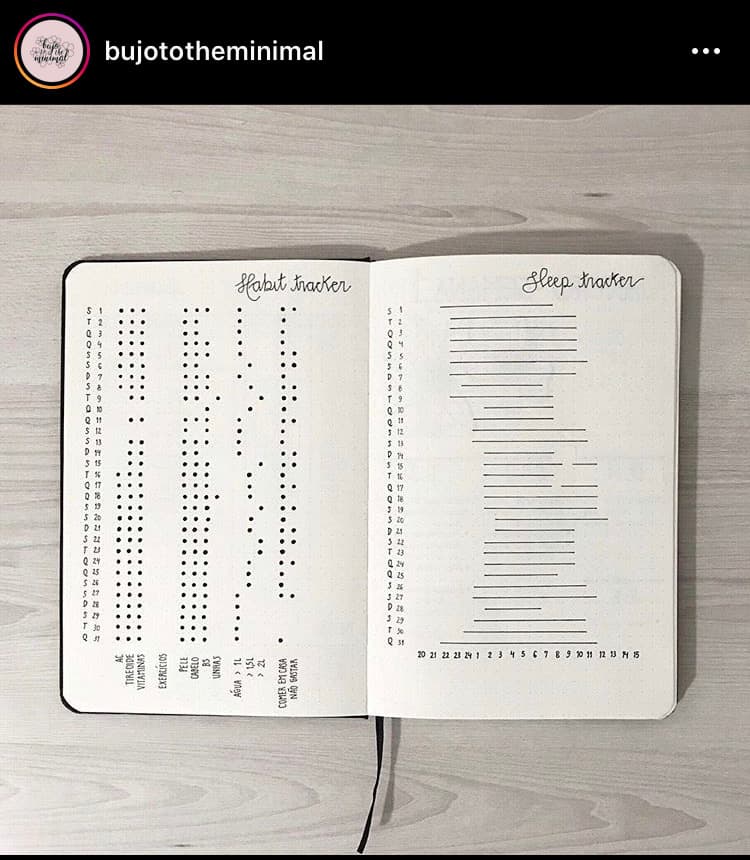 bujo
to the
minimal
bujototheminimal
Habit tracker
S 1
T 2
Q 3
Q 4
S 5
S 6
D 7
S 8
T 9
Q 10
Q 11
S 12
S 13
D 14
S 15
T 16
Q 17
Q 18
S 19
S 20
D 21
S 22
T 23
Q 24
Q 25
S 26
S 27
D 28
S 29
T 30
Q 31
AC
TIREOIDE
VITAMINAS
EXERCÍCIOS
PELE
CABELO
B5
UNHAS
ÁGUA > 1L
> 1,5L
> 2L
COMER EM CASA
NÃO GASTAR
Sleep tracker
S 1
T 2
Q 3
Q 4
S 5
S 6
D 7
S 8
T 9
Q 10
Q 11
S 12
S 13
D 14
S 15
T 16
Q 17
Q 18
S 19
S 20
D 21
S 22
T 23
Q 24
Q 25
S 26
S 27
D 28
S 29
T 30
Q 31
20 21 22 23 24 1 2 3 4 5 6 7 8 9 10 11 12 13 14 15